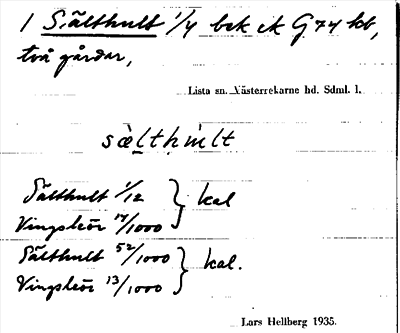 1 Sälthult 1/4 bek ek G 74 kb,
två gårdar,
Lista sn. Västerrekarne hd. Sdml. l.
sä̀lthúlt
Sälthult 1/12 } kal
Vingsleör 17/1000
Sälthult 52/1000 } kal.
Vingsleör 13/1000
Lars Hellberg 1935.